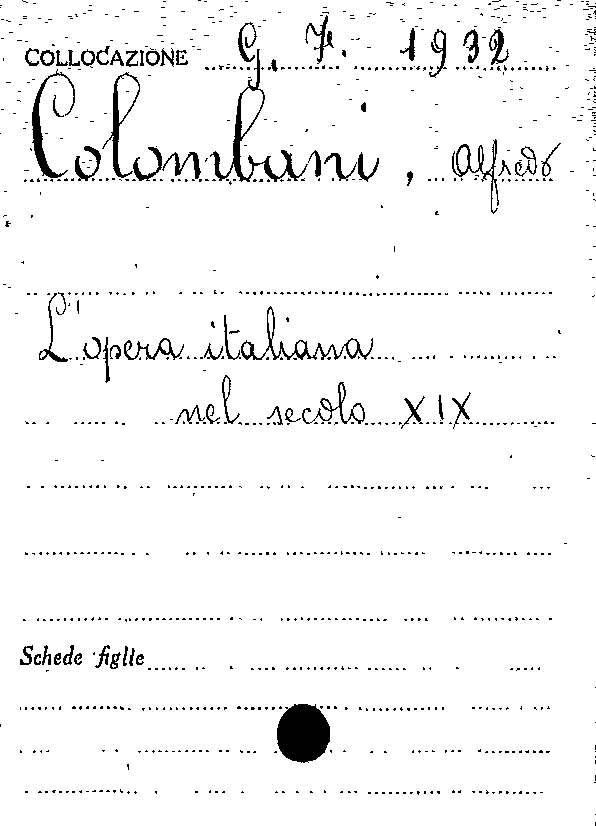 COLLOCAZIONE G. F. 1932
Colombani, Alfredo
L'opera italiana
nel secolo XIX
Schede figlie